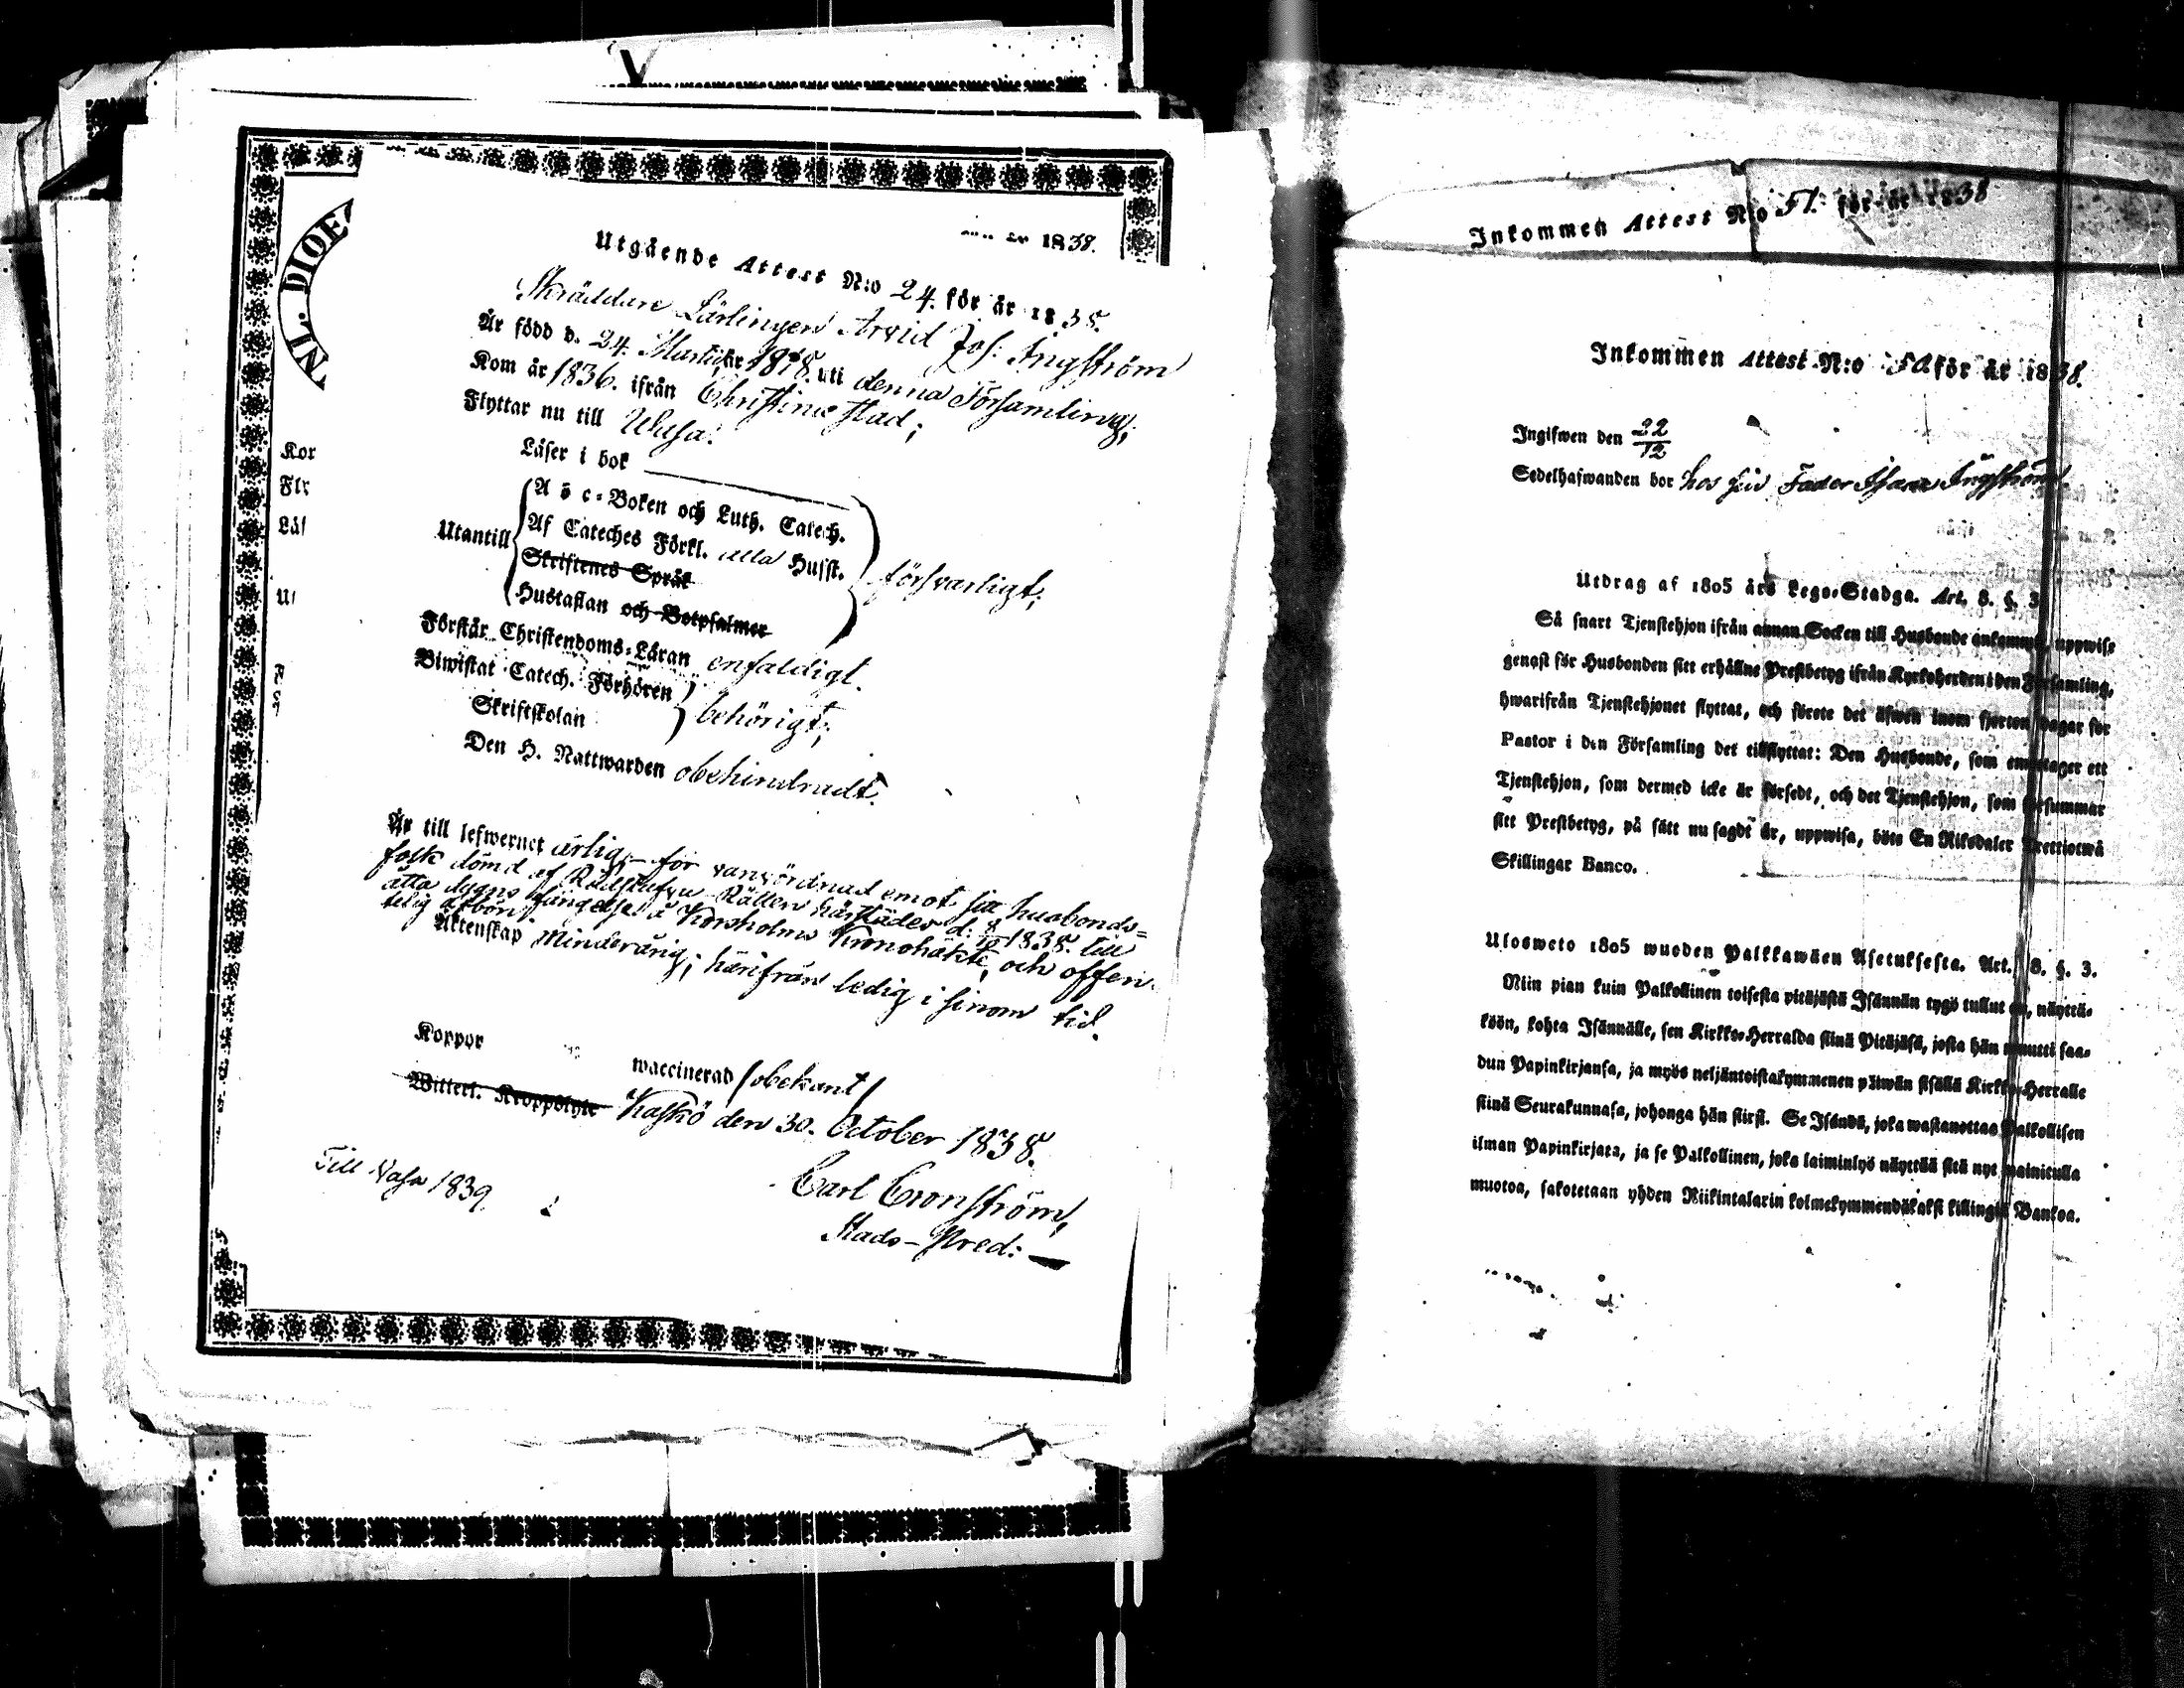 NL. DIOE
Kor
Läs
år 1838.
Utgående Attest N:o 24. för år 1838.
Skräddare Lärlingen Arvid Jos: Ingström
Är född d. 24. Martii år 1818. uti denna Församling;
Kom år 1836. ifrån Christinæ stad;
Flyttar nu till
Läser i bok
Utantill
A b c-Boken och Luth. Catech.
Af Cateches Förkl. alla Husst.
Skriftenes Språk
Hustaflan och Botpsalmer
försvarligt;
Förstår Christendoms-Läran enfaldigt.
Biwistat Catech. Förhören
Skriftskolan
behörigt;
Den H. Nattwarden obehindradt.
Är till lefwernet ärlig;- för vanvördnad emot sitt husbonds-
folk dömd af Rådstufvu-Rätten härstädes d: 8/10 1838. till
åtta dygns fängelse å Korsholms Kronohäkte, och offen-
telig afbön;
Äktenskap Minderårig; härifrån ledig i sinom tid.
Koppor
waccinerad /obekant/
Witterl. Kroppslyte
Kaskö den 30. October 1838.
Carl Cronström,
Stads-Pred:
Till Vasa 1839
Inkommen Attest N:o 51. för år 1838
Inkommen Attest N:o för år 1838.
Ingifwen den 22/12
Sedelhafwanden bor hos sin Fader Ingström
Utdrag af 1805 års Lego-Stadga. Art. 8. §. 3
Så snart Tjenstehjon ifrån annan Socken till Husbonde ankommit, uppwise
genast för Husbonden sitt erhållne Prestbetyg ifrån Kyrkoherden i den Församling,
hwarifrån Tjenstehjonet flyttat, och förete det äfwen inom fjorton dagar för
Pastor i den Församling det tillflyttat: Den Husbonde, som emottager ett
Tjenstehjon, som dermed icke är försedt, och det Tjenstehjon, som försummar
sitt Prestbetyg, på sätt nu sagdt är, uppwisa, böte En Riksdaler Trettiotwå
Skillingar Banco.
Ulosweto 1805 wuoden Palkkawäen Asetuksesta. Art. 8. §. 3.
Niin pian kuin Palkollinen toisesta pitäjästä Isännän tygö tullut on, näyttä-
köön, kohta Isännälle, sen Kirkko-Herralda siinä Pitäjäsä, josta hän muutti saa-
dun Papinkirjansa, ja myös neljäntoistakymmenen päiwän sisällä Kirkko-Herralle
siinä Seurakunnasa, johonga hän siirsi. Se Isändä, joka wastanottaa Palkollisen
ilman Papinkirjata, ja se Palkollinen, joka laiminlyö näyttää sitä nyt mainitulla
muotoa, sakotetaan yhden Riikintalarin kolmekymmendäkaksi killingiä Bankoa.